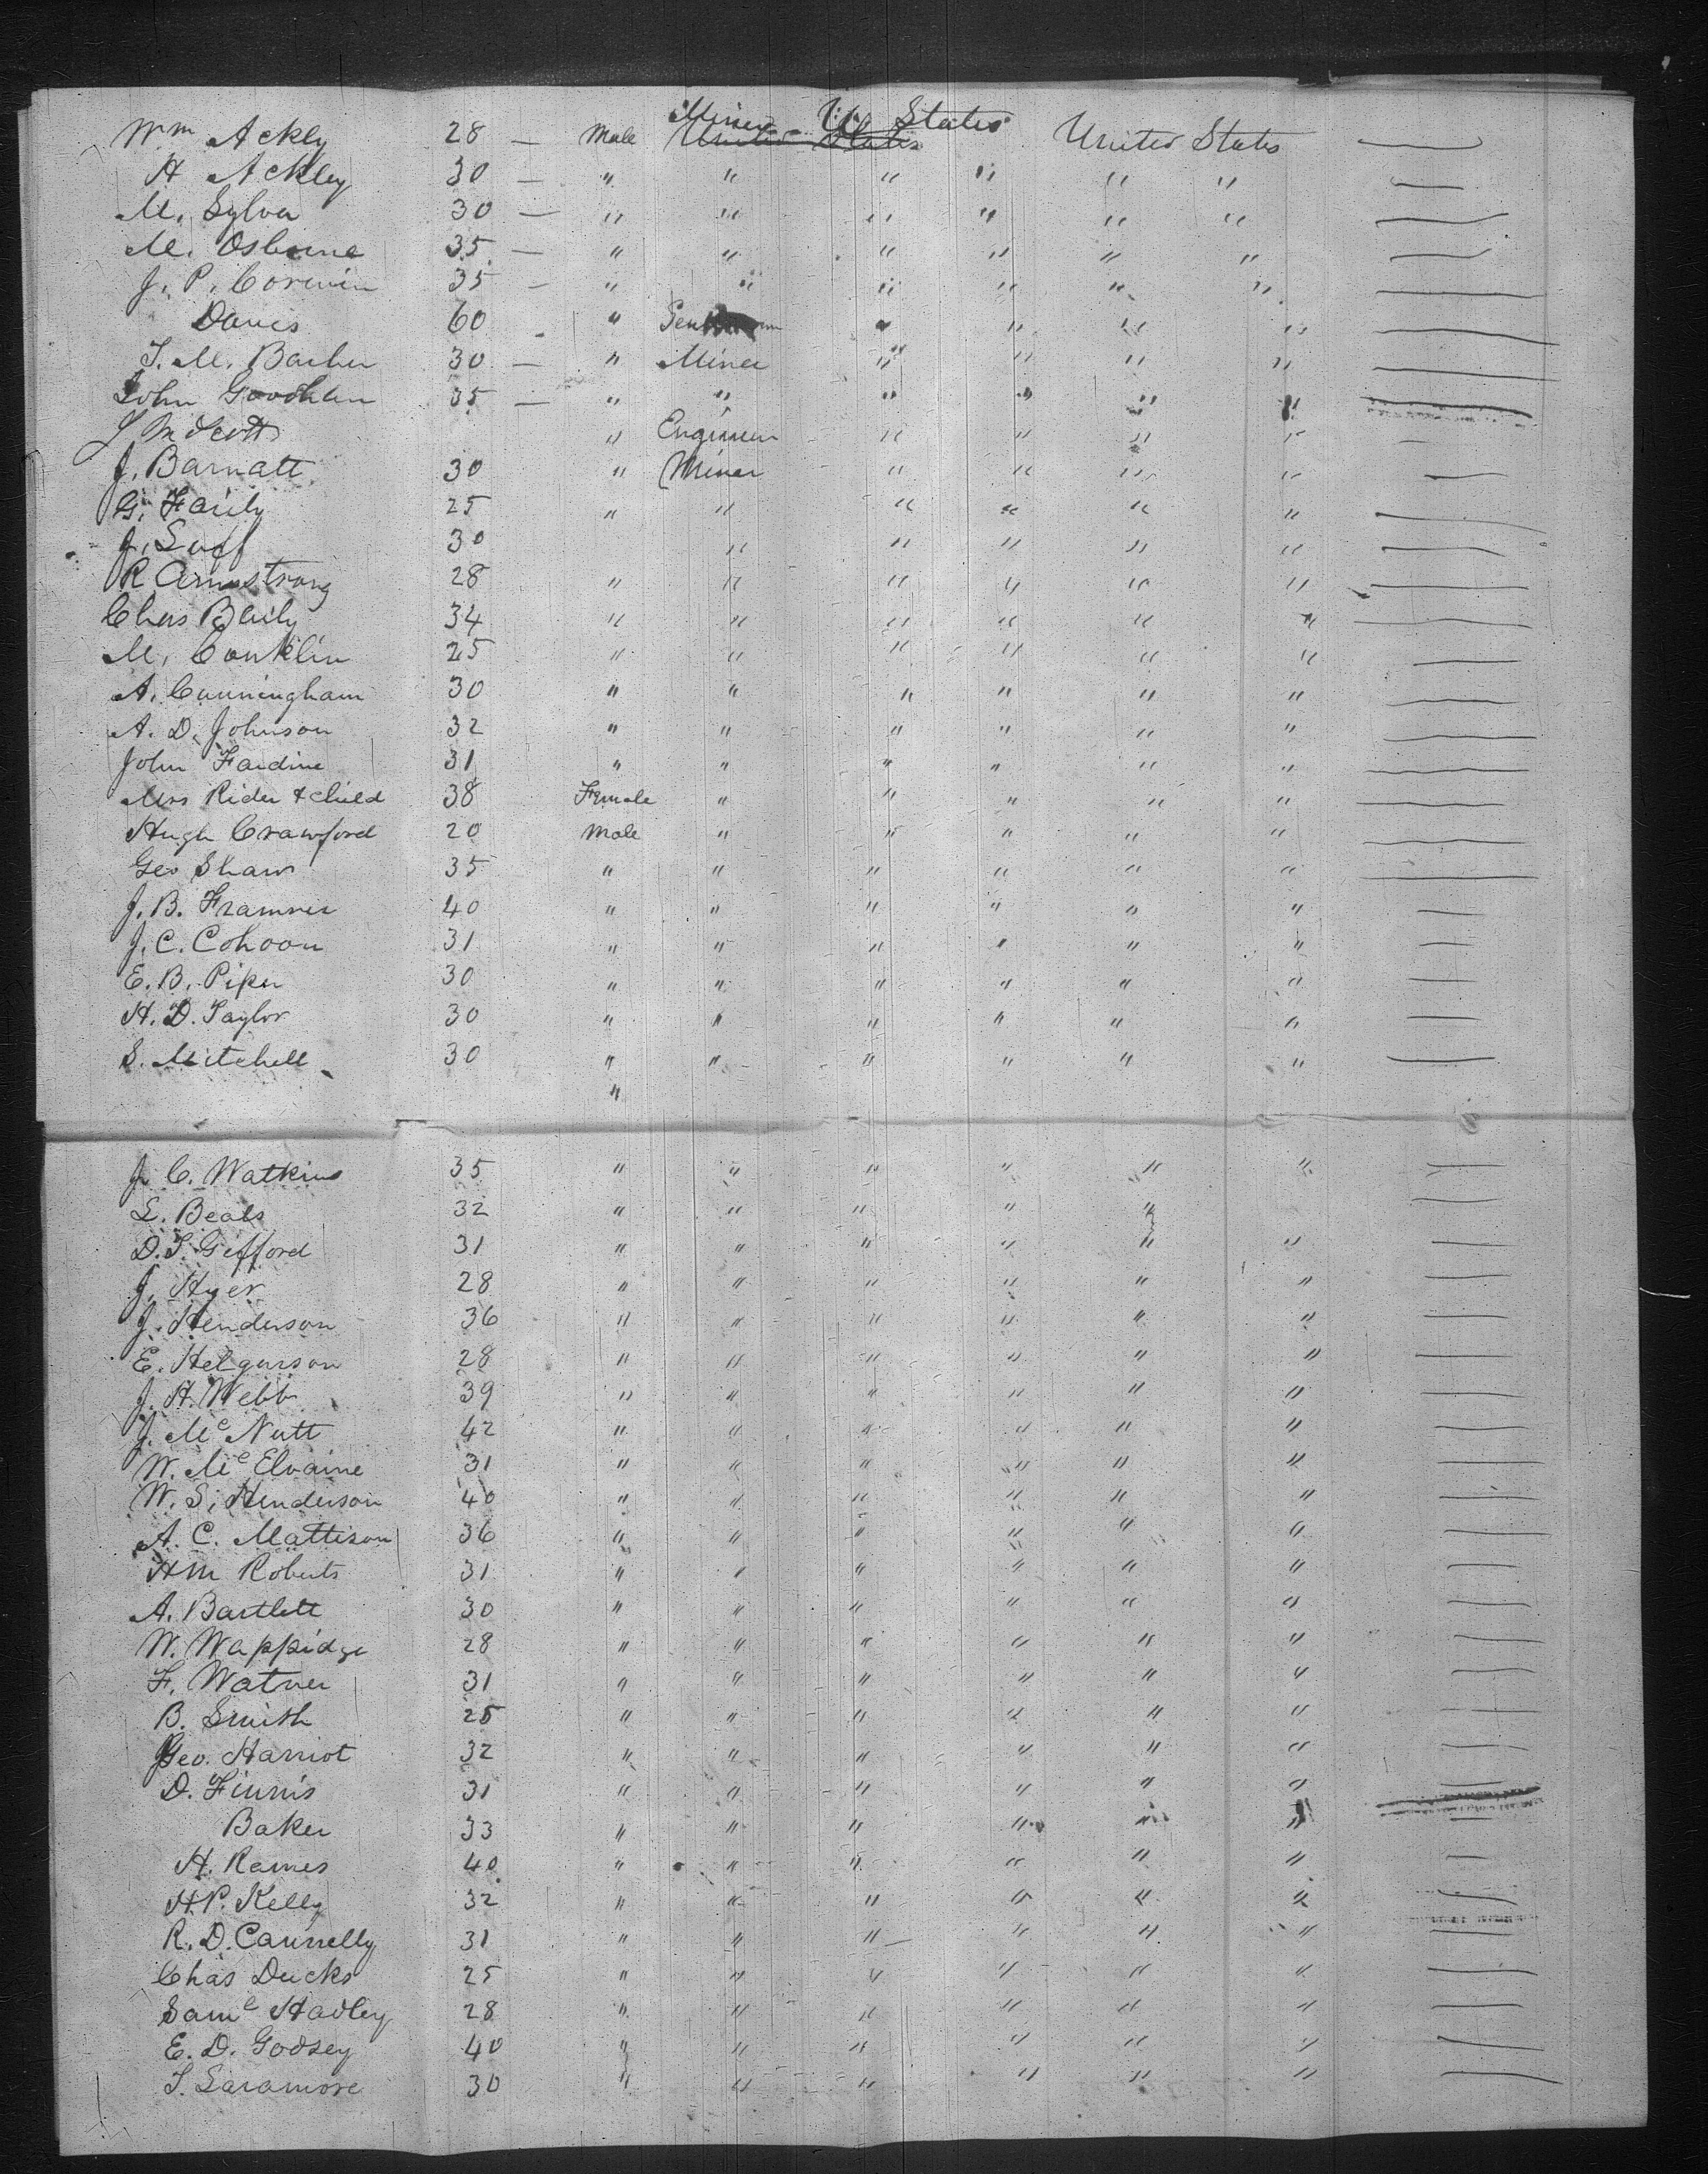 Wm Ackley 28 — Male Miner U. States United States —
H Ackley 30 — " " " " " " —
M. Sylva 30 — " " " " " " —
M. Osborne 35 — " " " " " " —
J. P. Corwin 35 — " " " " " " —
Davis 60 " " " " " —
T. M. Barber 30 — " Miner " " " " —
John Goodhan 35 — " " " " " " —
Scott " Engineer " " " " —
J. Barnatt 30 " Miner " " " " —
G. Faily 25 " " " " " " —
J. Suff 30 " " " " " —
R Armstrong 28 " " " " " " —
Chas Baily 34 " " " " " " —
M. Conklin 25 " " " " " " —
A. Cunningham 30 " " " " " " —
A. D. Johnson 32 " " " " " " —
John Fardine 31 " " " " " " —
Mrs Rider & child 38 Female " " " " " —
Hugh Crawford 20 Male " " " " " —
Geo Shaw 35 " " " " " " —
J. B. Framner 40 " " " " " " —
J. C. Cohoon 31 " " " " " " —
E. B. Piper 30 " " " " " " —
H. D. Taylor 30 " " " " " " —
S. Mitchell 30 " " " " " " —
"
J. C. Watkins 35 " " " " " " —
L. Beals 32 " " " " " —
D. T. Gefford 31 " " " " " " —
J. Hyer 28 " " " " " " —
J. Henderson 36 " " " " " " —
E. Helgurson 28 " " " " " " —
J. H. Webb 39 " " " " " " —
J. Mc Nutt 42 " " " " " " —
W. Mc Elvaine 31 " " " " " " —
W. S. Henderson 40 " " " " " " —
A. C. Mattison 36 " " " " " " —
HM Roberts 31 " " " " " " —
A. Bartlett 30 " " " " " " —
W. Wappidge 28 " " " " " " —
F. Watner 31 " " " " " " —
B. Smith 25 " " " " " " —
Geo. Harriot 32 " " " " " " —
D. Finnis 31 " " " " " " —
Baker 33 " " " " " " —
H. Raines 40 " " " " " " —
H. P. Kelly 32 " " " " " " —
R. D. Cannelly 31 " " " " " " —
Chas Ducks 25 " " " " " " —
Saml Hadley 28 " " " " " " —
E. D. Godsey 40 " " " " " " —
T. Saramore 30 " " " " " " —